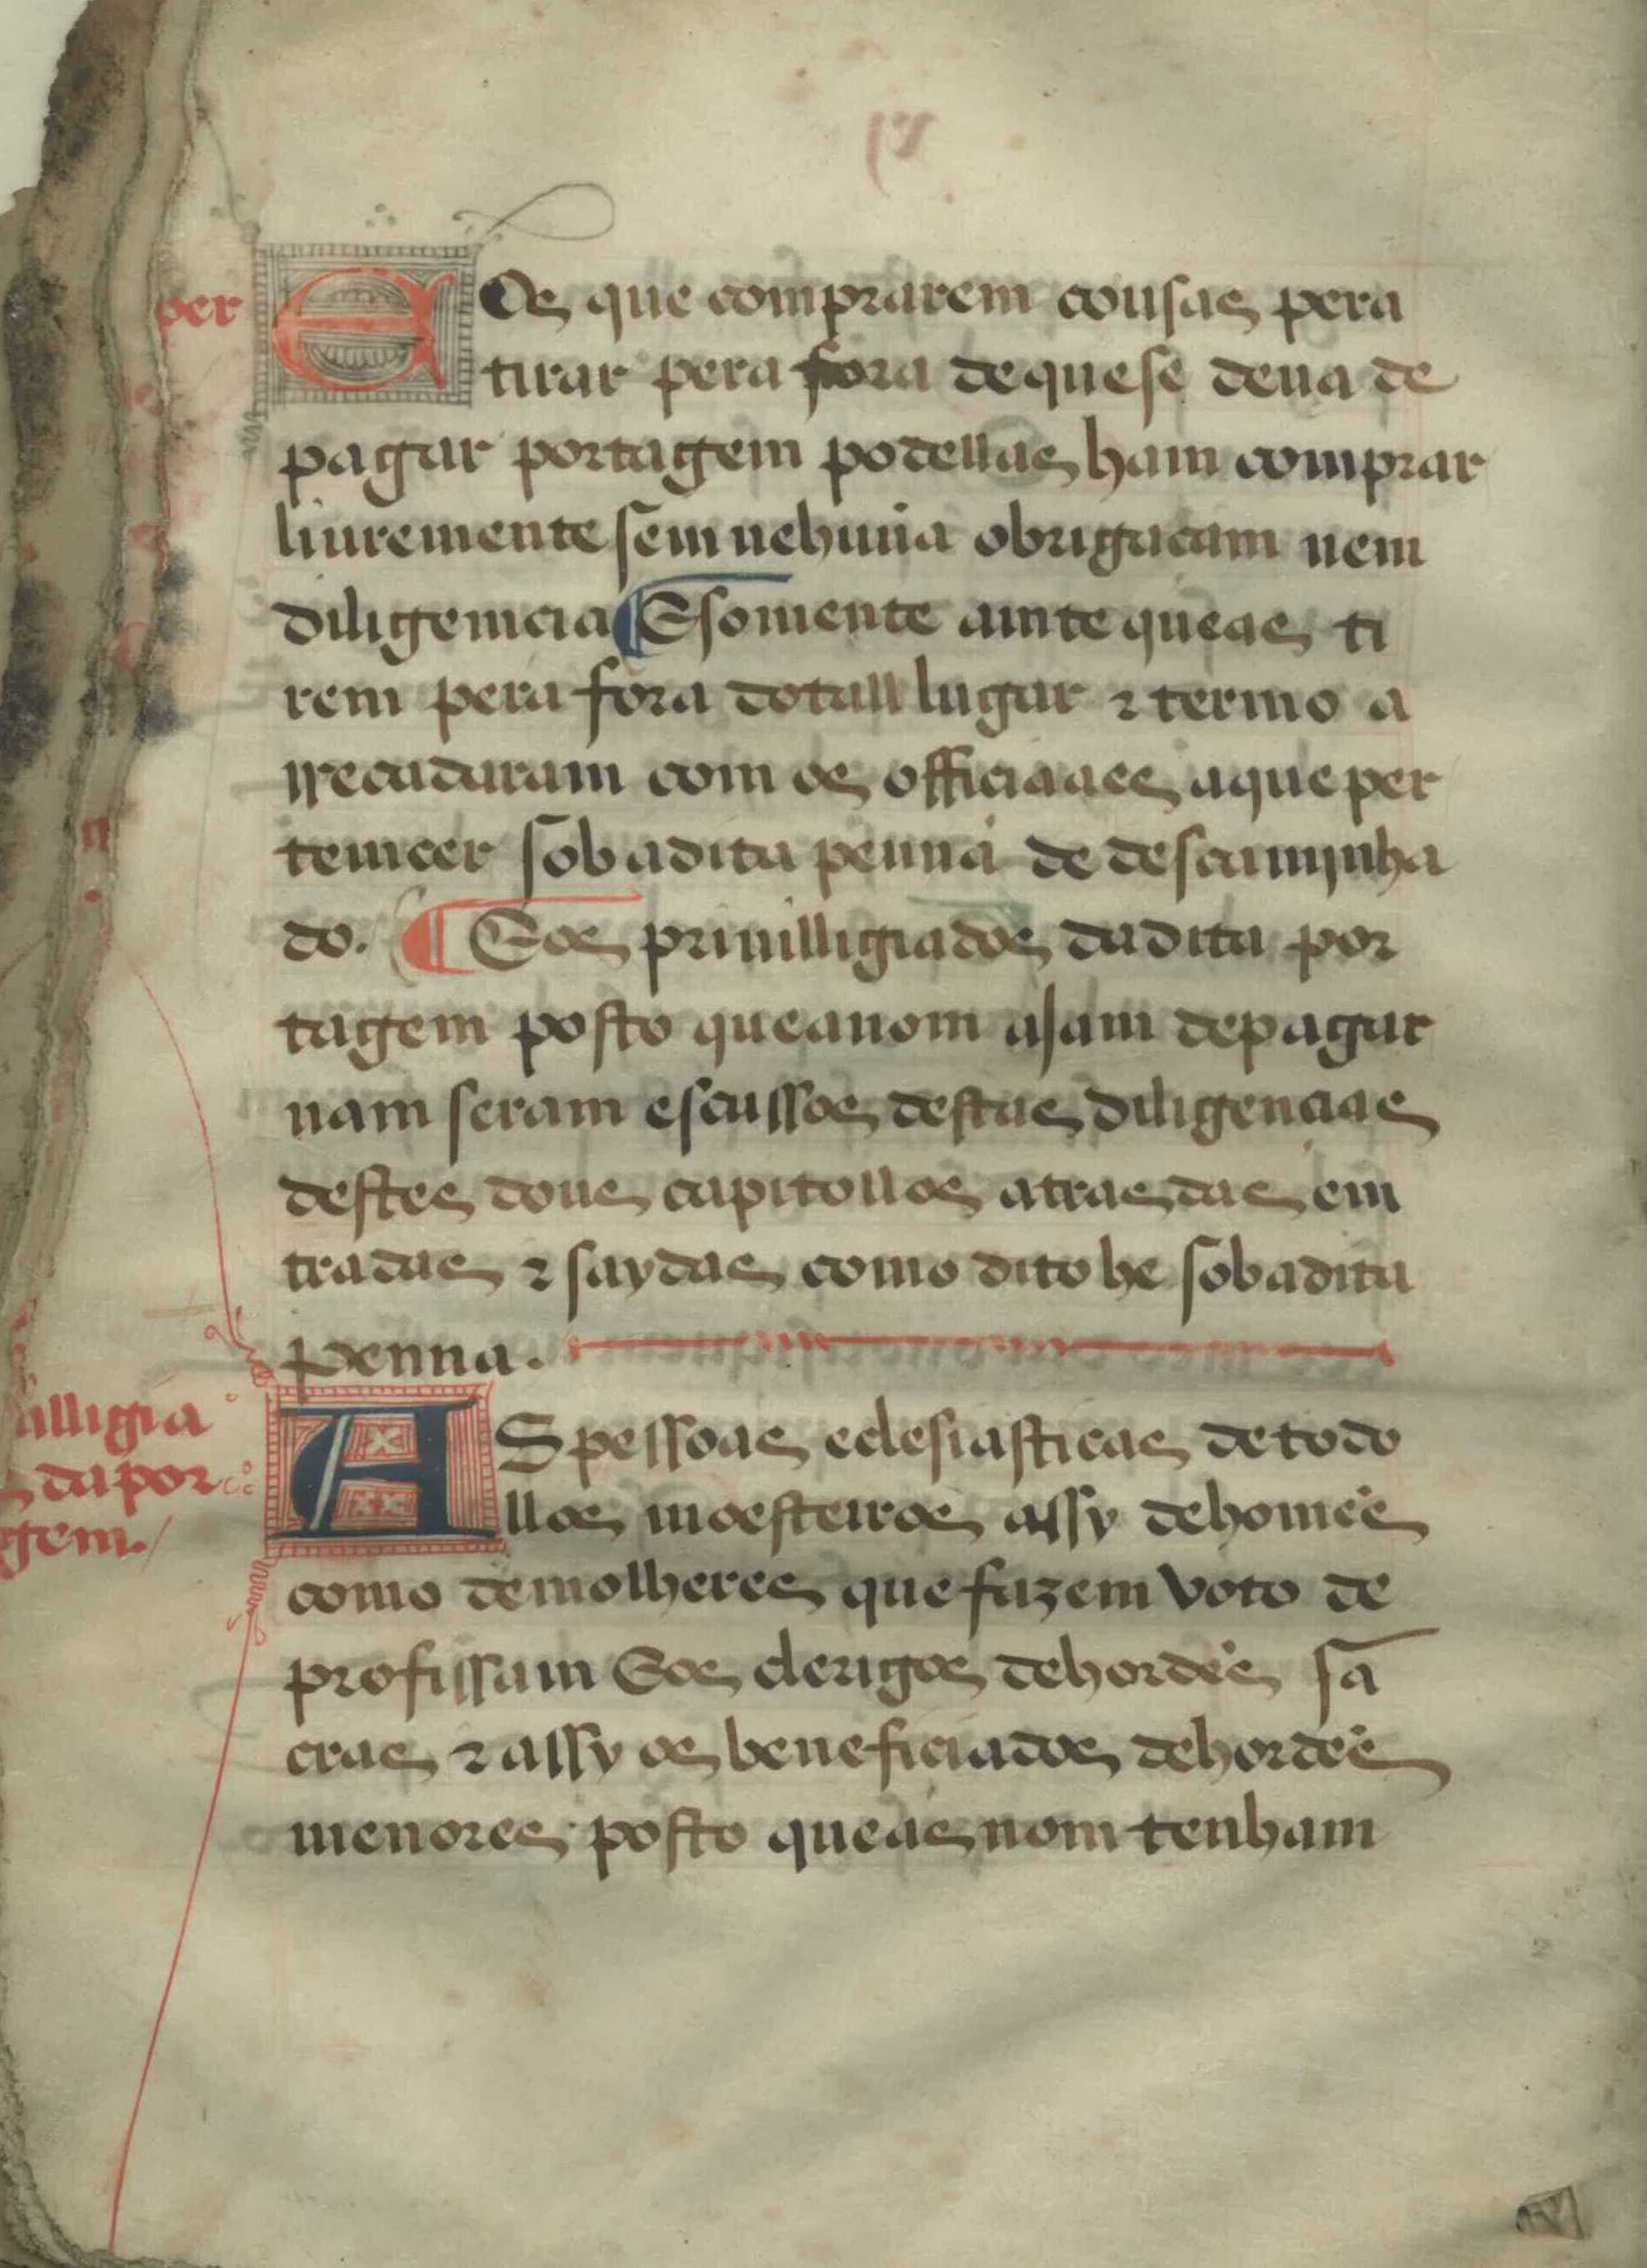 per
E Os que comprarem cousas pera
tirar pera fora de que se deua de
pagar portagem podellas ham comprar
liuremente sem nehuũa obrigaçam nem
diligemcia ¶ E somente amte que as ti
rem pera fora do tall lugar ⁊ termo a
rrecadaram com os officiaaes a que per
temcer sob a dita penna de descamjnha
do. ¶ E os priuilligiados da dita por
tagem posto que a nom ajam de pagar
nam seram escussos destas diligencias
destes dous capitollos atras das em
tradas ⁊ saydas como dito he sob a dita
penna.
illigia
s da por
gem.
A S pessoas eclesiasticas de todo
llos moesteiros assy de homeẽs
como de molheres que fazem voto de
profissam E os clerigos de hordeẽs sa
cras ⁊ assy os beneficiados de hordeẽs
menores posto que as nom tenham